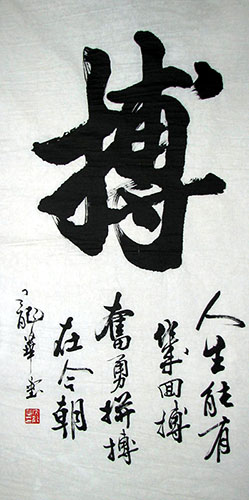 搏
人生能有
幾回搏
奮勇拼搏
在今朝
龍華